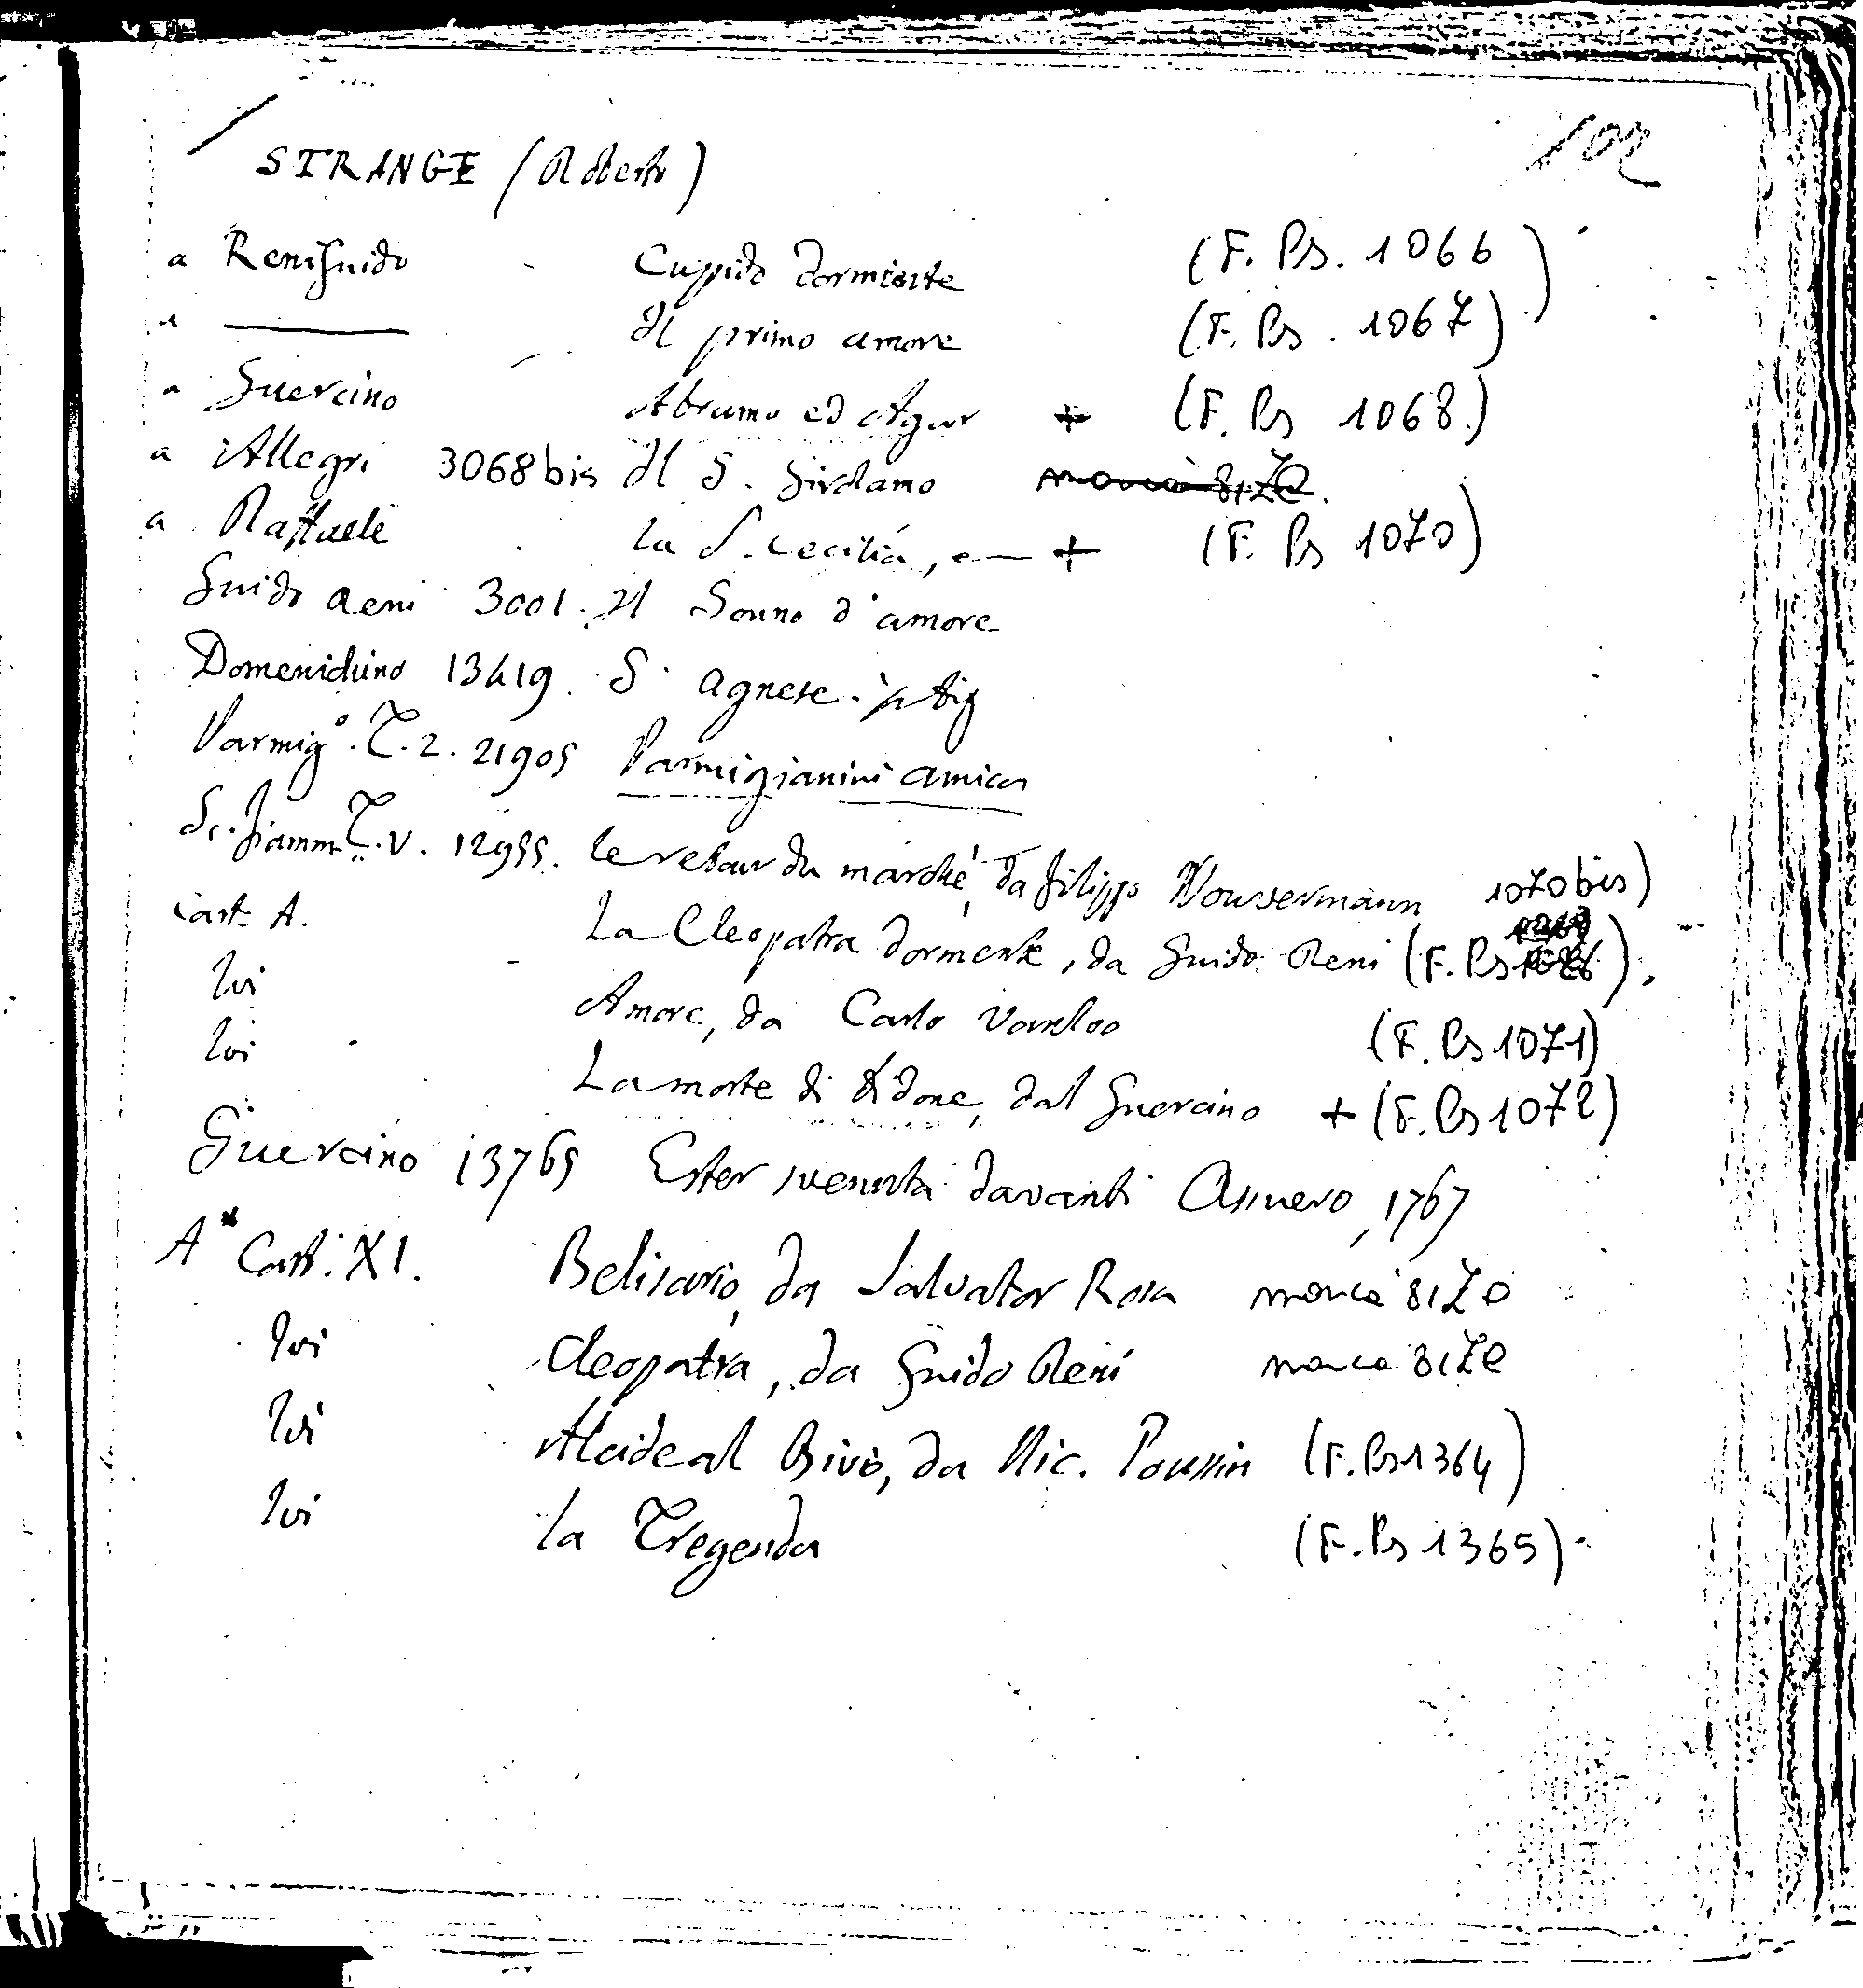 102
STRANGE (Roberto)
a Reni Guido Cupido dormiente (F. Ps. 1066)
a ——— Il primo amore (F. Ps. 1067)
a Guercino Abramo ed Agar + (F. Ps 1068)
a Allegri 3068 bis Il S. Girolamo manca 81Z0.
a Raffaele La S. Cecilia, + (F. Ps 1070)
Guido Reni 3001. Il Sonno d'amore
Domenichino 13419. S. Agnese.
Parmig°. T. 2. 21905 Parmigianini amica
Sc. fiamm. T. V. 12955. Le retour du marché, da Filippo Wouvermann 1070 bis)
Cart. A. La Cleopatra dormente, da Guido Reni (F. Ps
Ivi Amore, da Carlo Vanloo (F. Ps 1071)
Ivi La morte di Didone, dal Guercino + (F. Ps 1072)
Guercino 13765 Ester svenuta davanti Assuero, 1767
A* Cart. XI. Belisario, da Salvator Rosa manca 81Z0
Ivi Cleopatra, da Guido Reni manca 81Z0
Ivi Alcide al Bivio, da Nic. Poussin (F. Ps 1364)
Ivi la Tregenda (F. Ps 1365)